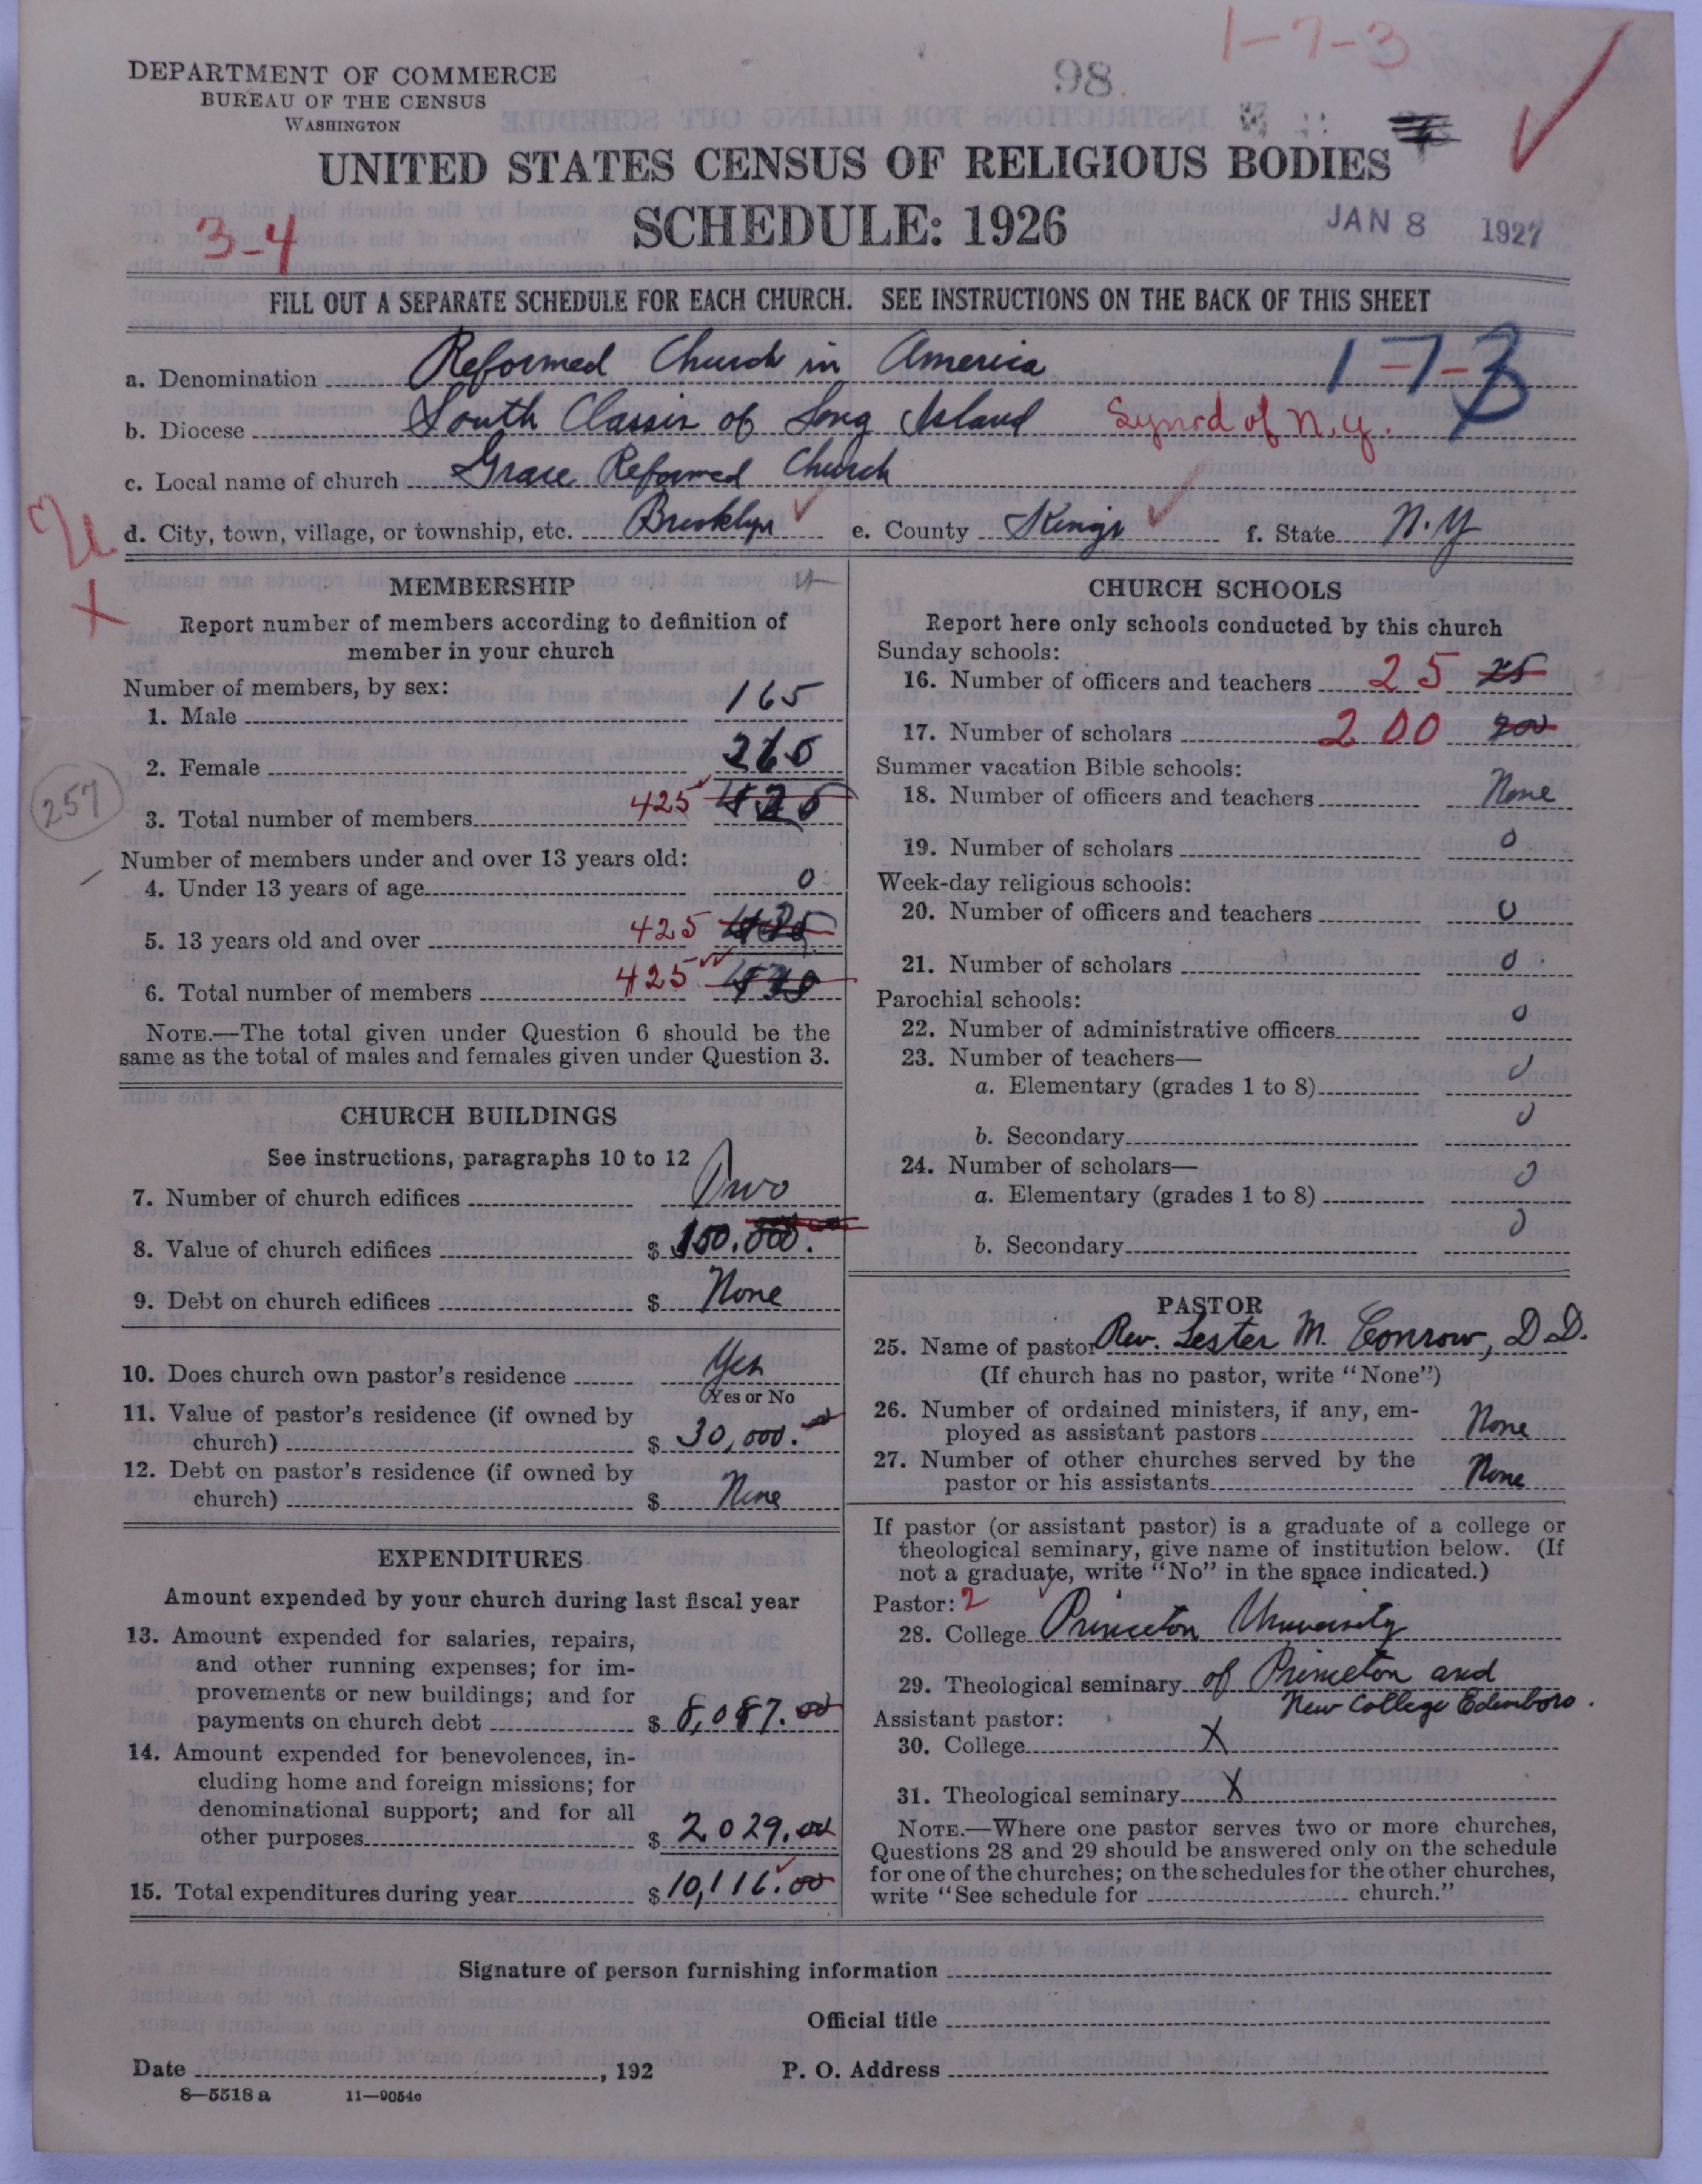 1-7-3
DEPARTMENT OF COMMERCE
BUREAU OF THE CENSUS
WASHINGTON
98
UNITED STATES CENSUS OF RELIGIOUS BODIES
SCHEDULE: 1926
3-4
JAN 8 1927
FILL OUT A SEPARATE SCHEDULE FOR EACH CHURCH. SEE INSTRUCTIONS ON THE BACK OF THIS SHEET
1-7-3
a. Denomination Reformed Church in America
b. Diocese South Classis of Long Island Synod of N.Y.
c. Local name of church Grace Reformed Church
d. City, town, village, or township, etc. Brooklyn e. County Kings f. State N.Y
MEMBERSHIP
Report number of members according to definition of
member in your church
Number of members, by sex:
1. Male 165
2. Female 260
257
3. Total number of members 425
Number of members under and over 13 years old:
4. Under 13 years of age 0
5. 13 years old and over 425
6. Total number of members 425
NOTE.—The total given under Question 6 should be the
same as the total of males and females given under Question 3.
CHURCH BUILDINGS
See instructions, paragraphs 10 to 12
7. Number of church edifices Two
8. Value of church edifices $ 150,000.
9. Debt on church edifices $ None
10. Does church own pastor's residence Yes
Yes or No
11. Value of pastor's residence (if owned by
church) $ 30,000.
12. Debt on pastor's residence (if owned by
church) $ None
EXPENDITURES
Amount expended by your church during last fiscal year
13. Amount expended for salaries, repairs,
and other running expenses; for im-
provements or new buildings; and for
payments on church debt $ 8,087.00
14. Amount expended for benevolences, in-
cluding home and foreign missions; for
denominational support; and for all
other purposes $ 2,029.00
15. Total expenditures during year $ 10,116.00
CHURCH SCHOOLS
Report here only schools conducted by this church
Sunday schools:
16. Number of officers and teachers 25 25
17. Number of scholars 200 200
Summer vacation Bible schools:
18. Number of officers and teachers None
19. Number of scholars 0
Week-day religious schools:
20. Number of officers and teachers 0
21. Number of scholars 0
Parochial schools:
22. Number of administrative officers 0
23. Number of teachers—
a. Elementary (grades 1 to 8) 0
b. Secondary 0
24. Number of scholars—
a. Elementary (grades 1 to 8) 0
b. Secondary 0
PASTOR
25. Name of pastor Rev. Lester M. Conrow, D.D.
(If church has no pastor, write "None")
26. Number of ordained ministers, if any, em-
ployed as assistant pastors None
27. Number of other churches served by the
pastor or his assistants None
If pastor (or assistant pastor) is a graduate of a college or
theological seminary, give name of institution below. (If
not a graduate, write "No" in the space indicated.)
Pastor: 2
28. College Princeton University
29. Theological seminary of Princeton and
New College Edinboro.
Assistant pastor:
30. College X
31. Theological seminary X
NOTE.—Where one pastor serves two or more churches,
Questions 28 and 29 should be answered only on the schedule
for one of the churches; on the schedules for the other churches,
write "See schedule for church."
Signature of person furnishing information
Official title
Date , 192 P. O. Address
8—5518 a 11—9054c